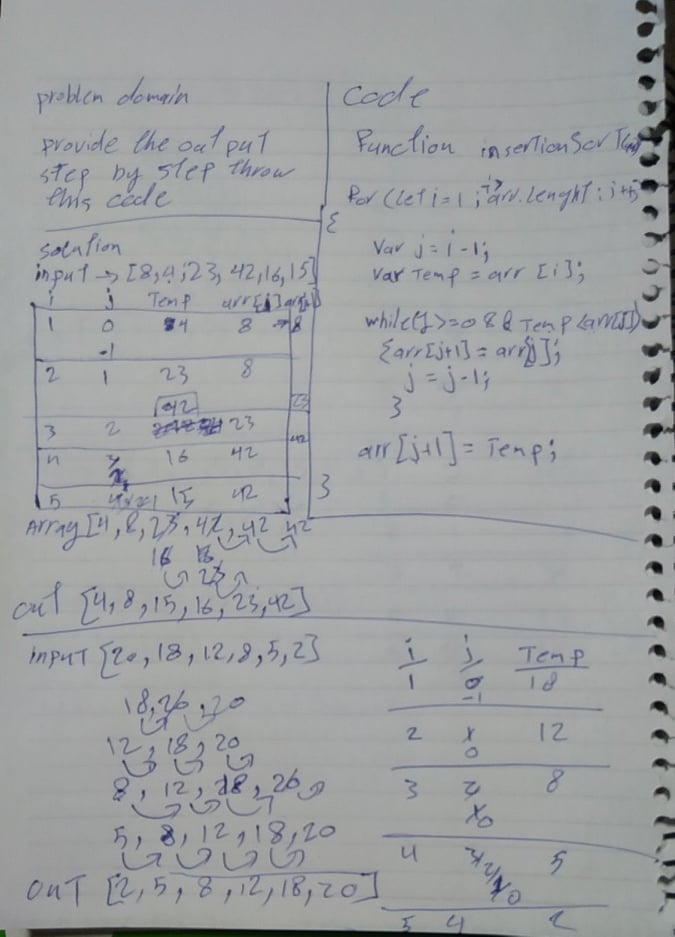 problem domain
provide the output
step by step throw
this code
solution
input → [8,4,23, 42,16,15]
i j Temp arr[j] arr[j+1]
1 0 4 8 → 8
-1
2 1 23 8
42 23
3 2 23 42
4 3 16 42
5 4 15 42
Array [4,8,23,42,42 42
16 16
23
out [4,8,15,16,23,42]
code
Function insertionSort
For (let i=1 ; i> arr.lenght ; i++)
{
Var j= i-1;
var Temp = arr [i];
while(j>=0 && Temp<arr[j])
{arr[j+1] = arr[j];
j = j-1;
}
arr[j+1] = Temp;
}
input [20,18,12,8,5,2]
18,20,20
12,18,20
8,12,18,20
5,8,12,18,20
OUT [2,5,8,12,18,20]
i j Temp
1 0 18
-1
2 1 12
0
3 2 8
1 0
4 3 2 1 0 5
5 4 2